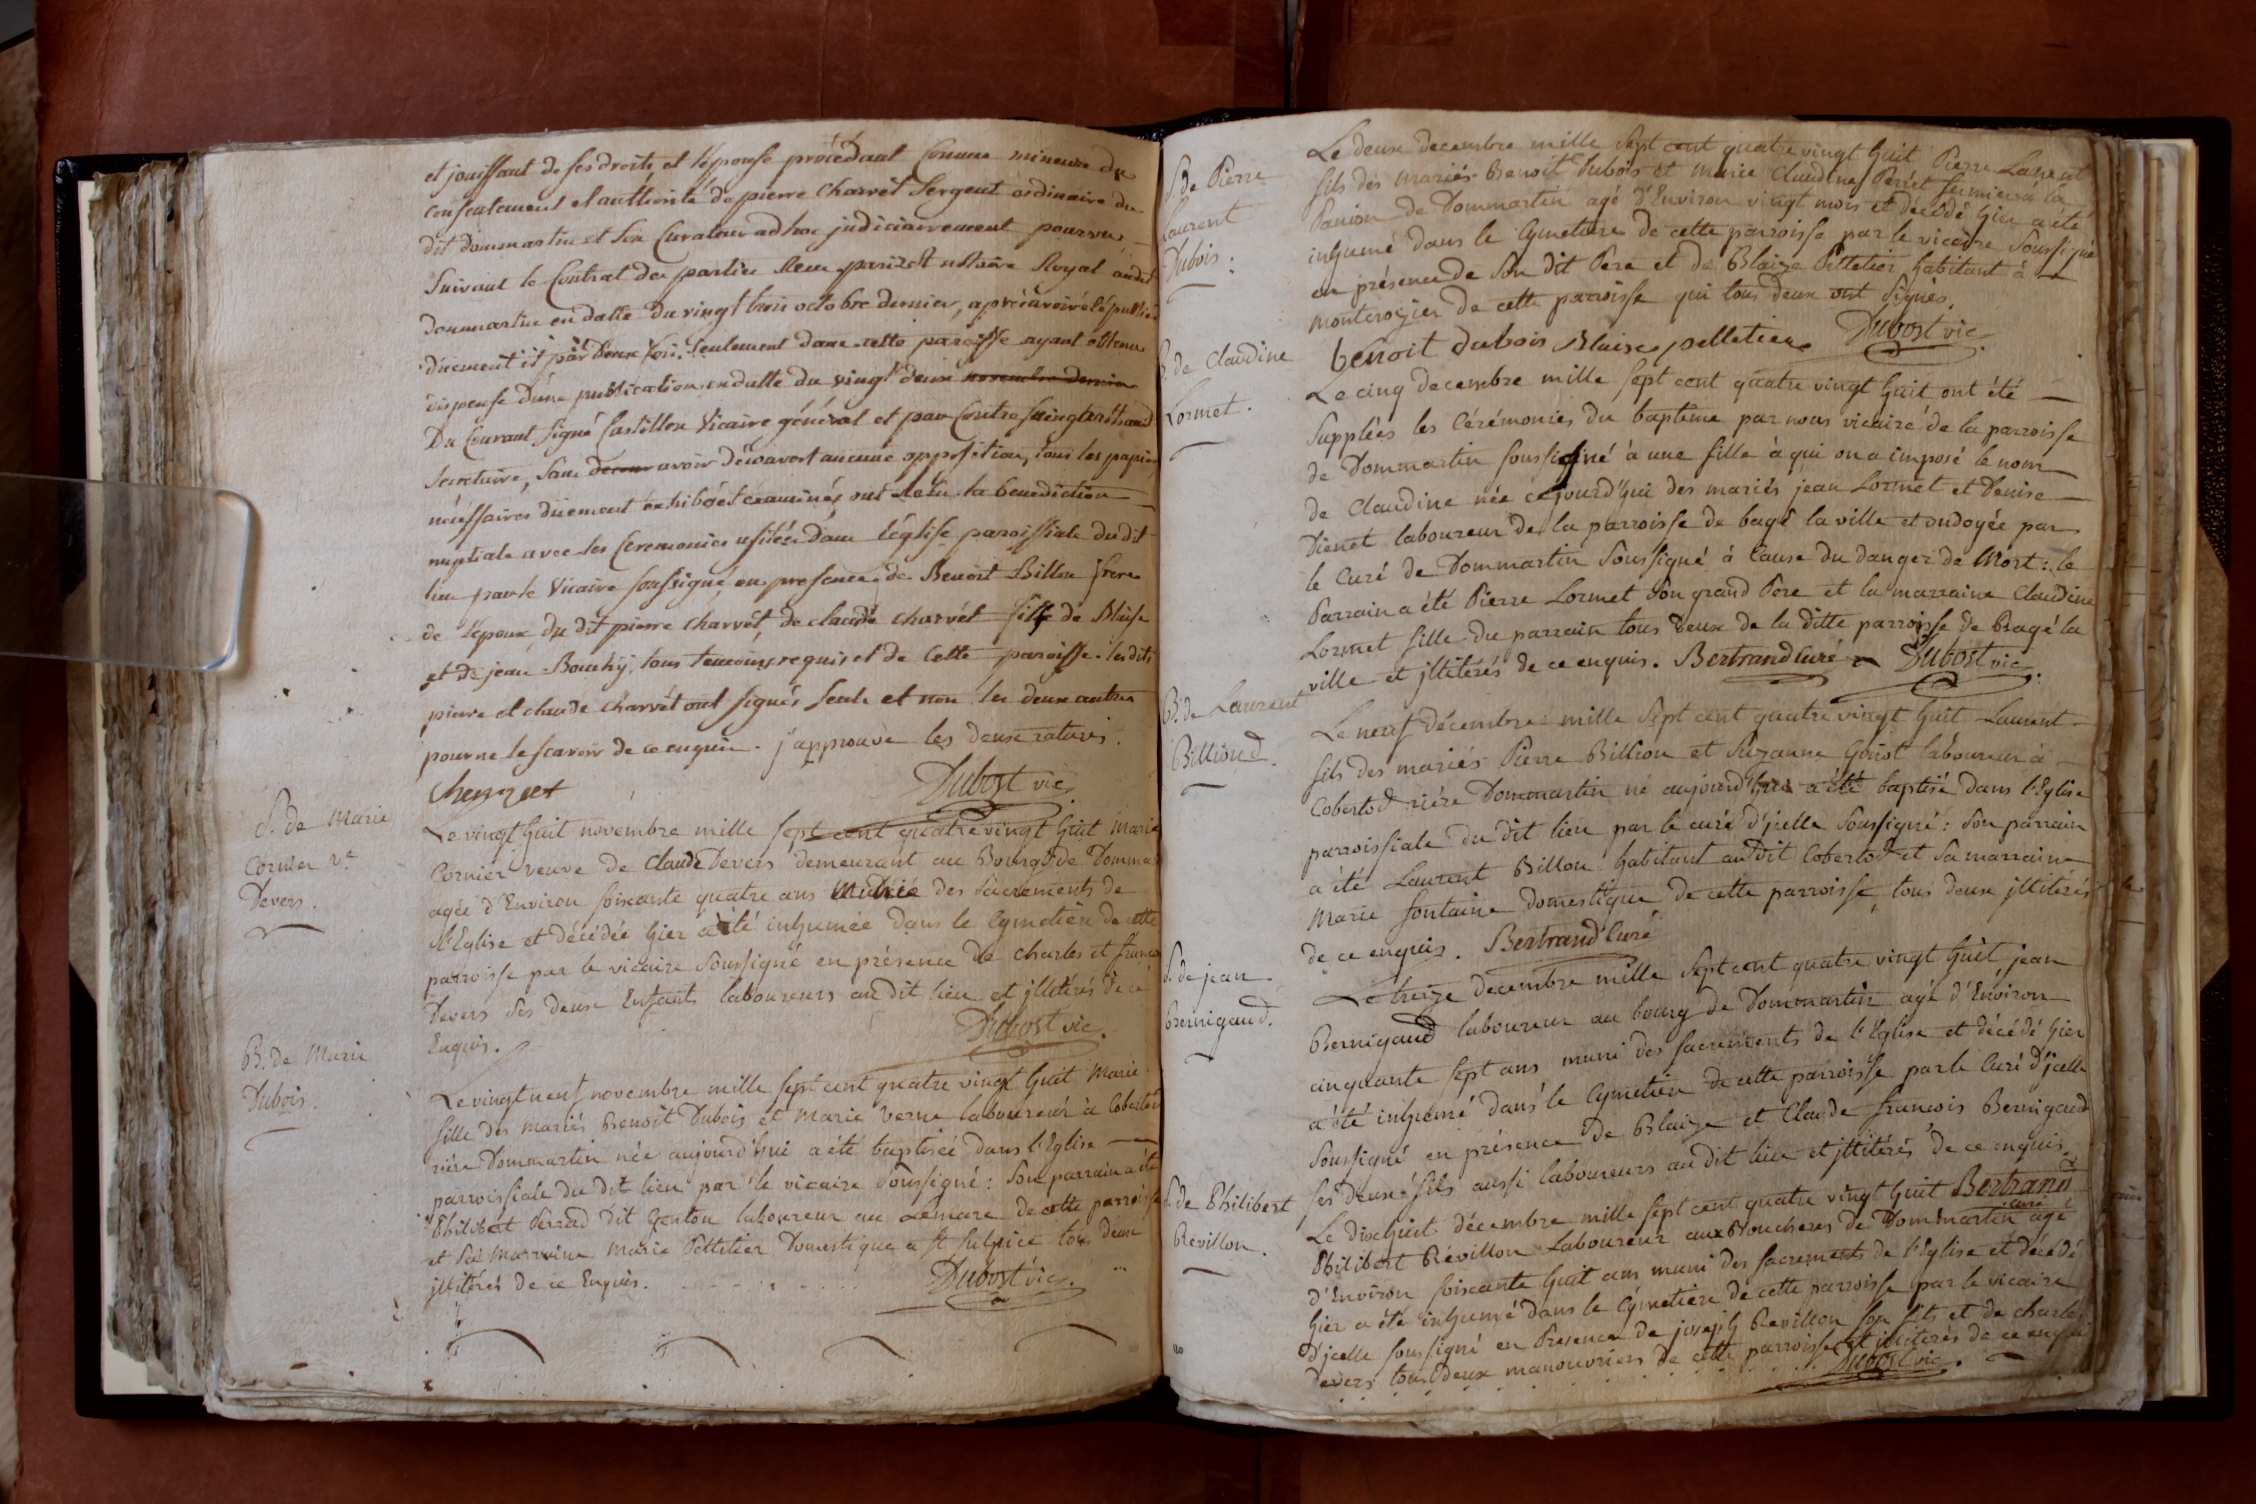 et jouissant de ses droits, et l'épouse procédant comme mineure du
consentement et authorité de pierre Charvet Sergent ordinaire du
dit dommartin et son Curateur ad hoc judiciairement pourvu,
Suivant le Contrat des parties Reçu parizet notaire Royal audit
dommartin en datte du vingt trois octobre dernier, après avoir été publiés
dûement ici par deux fois seulement dans cette paroisse ayant obtenu
dispense d'une publication en datte du vingt deux novembre dernier
Du Courant signé Castillon Vicaire général et par Contre seing
secretaire, sans avoir découvert aucune opposition, tous les papiers
néçessaires dûement exhibés et examinés ont reçu la benediction
nuptiale avec les Ceremonies usitées dans l'église paroissiale du dit
lieu par le Vicaire soussigné, en presence de Benoit Billon frere
de l'époux, du dit pierre Charvét, de claude Charvét fils de Blaise
et de jean Bouchy, tous temoins requis et de Cette paroisse. les dits
pierre et claude Charvét ont signés seuls et non les deux autres
pour ne le scavoir de ce enquis. j'approuve les deux ratures.
Charvet Dubost vic.
S. de Marie
Cornier v.e
Devers.
Le vingt huit novembre mille sept cent quatre vingt huit Marie
Cornier veuve de Claude Devers demeurant au Bourg de Domma
agée d'Environ soixante quatre ans Munie des sacrements de
l'Eglise et décédée hier a été inhumée dans le Cymetière de cette
parroisse par le vicaire soussigné en présence de Charles et franco
Devers Ses deux Enfants laboureurs au dit lieu et illitérés de ce
Enquis. Dubost vic.
B. de Marie
Dubois.
Le vingt neuf novembre mille sept cent quatre vingt huit Marie
fille des mariés Benoit Dubois et Marie Verne laboureur à Cobertod
riére Dommartin née aujourd'hui a été baptisée dans l'Eglise
parroissiale du dit lieu par le vicaire soussigné : Son parrain a été
Philibert Perrad dit Genton laboureur au Lemare de cette parroisse
et sa marraine Marie Pelletier Domestique a St Sulpice tous deux
illitérés de ce Enquis. Dubost vic.
S. de Pierre
Laurent
Dubois.
Le deux decembre mille sept cent quatre vingt huit Pierre Laurent
fils des mariés Benoit Dubois et Marie Claudine Perret fermiers à la
Ponion de Dommartin agé d'Environ vingt mois et décédé hier a été
inhumé dans le Cymetiere de cette parroisse par le vicaire soussigné
en présence de Son dit Pere et de Blaize Pelletier habitant à
montcrozier de cette parroisse qui tous deux ont signés.
benoit dubois Blaise pelletier Dubost vic
B. de Claudine
Lormet.
Le cinq decembre mille sept cent quatre vingt huit ont été
Supplées les Cérémonies du baptême par nous vicaire de la parroisse
de Dommartin soussigné à une fille à qui on a imposé le nom
de Claudine née cejourd'hui des mariés jean Lormet et Denise
Dienet laboureur de la parroisse de bagé la ville et ondoyée par
le Curé de Dommartin soussigné à Cause du danger de Mort : le
Parrain a été Pierre Lormet Son grand Pere et la marraine Claudine
Lormet fille du parrain tous deux de la ditte parroisse de Bagé la
ville et illitérés de ce enquis. Bertrand Curé Dubost vic.
B. de Laurent
Billiond.
Le neuf décembre mille sept cent quatre vingt huit Laurent
fils des mariés Pierre Billion et Suzanne Goirot laboureur à
Cobertod riére Dommartin né aujourd'hui a été baptisé dans l'Eglise
parroissiale du dit lieu par le curé d'jcelle soussigné : Son parrain
a été Laurent Billon habitant au dit Cobertod et sa marraine
Marie fontaine domestique de cette parroisse, tous deux illitérés
de ce enquis. Bertrand Curé
S. de jean
Bernigaud.
Le treize decembre mille sept cent quatre vingt huit jean
Bernigaud laboureur au bourg de Dommartin agé d'Environ
cinquante sept ans muni des sacrements de l'Eglise et décédé hier
a été inhumé dans le Cymetière de cette parroisse par le Curé d'jcelle
Soussigné en présence de Blaize et Claude francois Bernigaud
ses deux fils aussi laboureurs au dit lieu et illitérés de ce enquis.
Bertrand
curé
S. de Philibert
Revillon.
Le dixhuit décembre mille sept cent quatre vingt huit
Philibert Révillon Laboureur aux Boucheres de Dommartin agé
d'Environ soixante huit ans muni des sacrements de l'Eglise et décédé
hier a été inhumé dans le Cymetiere de cette parroisse par le vicaire
d'jcelle soussigné en Présence de joseph Revillon son fils et de charles
devers tous deux manouvriers de cette parroisse et illiterés de ce enquis
Dubost vic.